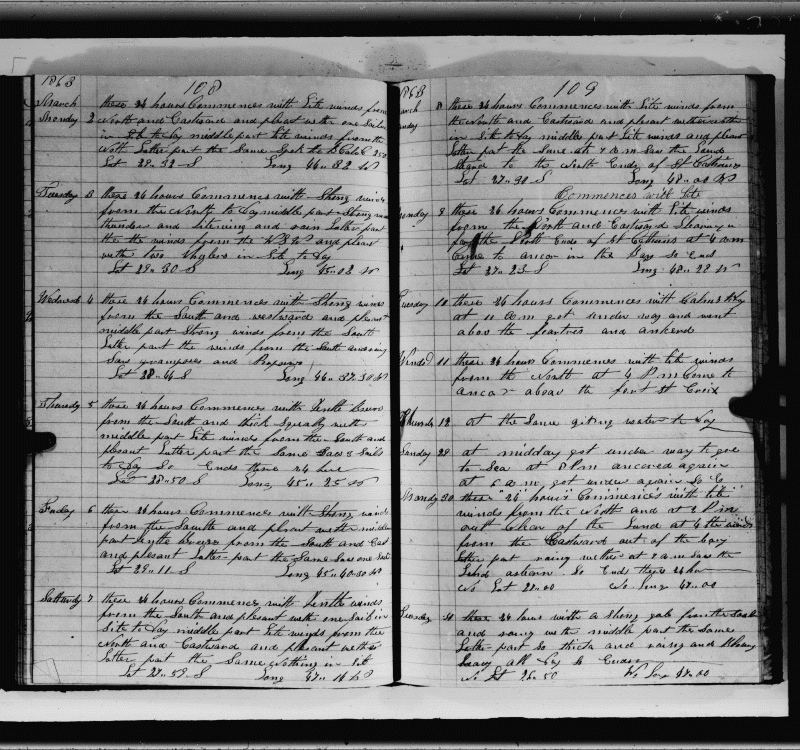 1863
108
March
Monday 2 these 24 hours Commences with Lite winds from
North and Eastward and pleast with one Sail
in Sit to Lay middle part Lite winds from the
North Latter part the Same
Lat 28..32 S Long 44..82 W
Tuesday 3 these 24 hours Commences with Strong winds
from the North to Lay middle part Strong
thunder and litening and rain Latter part
the the winds from the and pleast
with two in Sit to Lay
Lat 29..30 S Long 45..02 W
Wednesd 4 these 24 hours Commences with Strong winds
from the South and westward and pleast
middle part Strong winds from the South
Latter part the winds from the South
Saw grampuses and
Lat 28..4 S Long 46..37.30 W
Thursdy 5 these 24 hours Commences with Gentle
from the South and thick Squally with
middle part Lite winds from the South and
plesant Latter part the Same Saw 2 Sails
to Lay So Ends these 24 hours
Lat 28..50 S Long 45..25 W
Friday 6 these 24 hours Commences with Strong winds
from the South and pleast with middle
part from the South and East
and plesant Latter part the Same Saw one Sail
Lat 29..11 S Long 45..40.30 W
Satturdy 7 these 24 hours Commences with Gentle winds
from the South and plesant with one Sail in
Sit to Lay middle part Lite winds from the
North and Eastward and plesant wether
Latter part the Same Nothing in Sit
Lat 27..59 S Long 47..16 W
1863
109
March
Sunday 8 these 24 hours Commences with Lite winds from
the North and Eastward and plesant wether
in Sit to Lay middle part Lite winds and pleast
Latter part the Same at 7 a m Saw the Land
to the North Ende of St
Lat 27..30 S Long 48..00 W
Commences with Lite
Monday 9 these 24 hours Commences with Lite winds
from the North and Eastward
the North Ende of St at 4 a m
Come to ancor in the Bay So Ends
Lat 27..23 S Long 48..28 W
Tuesday 10 these 24 hours Commences with Calms
at 11 a m got under way and went
abov the and ankerd
Wensd 11 these 24 hours Commences with lite winds
from the North at 4 P m Come to
ancor above the fort St Croix
Thursdy 12 at the Same giting water to Lay
Sunday 29 at midday got under way to goe
to Sea at 8 P m ancored again
at 6 a m got under again So E
Mondy 30 these "24 hours" Commences with lite
winds from the North and at 2 P m
Clear of the Land at 4 the winds
from the Eastward out of the bay
Latter part rainy wether at 7 a m Saw the
Land astern So Ends these 24 hours
No Lat 27..00 No Long 47..00
Tuesday 31 these 24 hours with a Strong gale from the
and rainy with middle part the Same
Latter part So thick and rainy and
No Lat 26..50 No Long 47..00